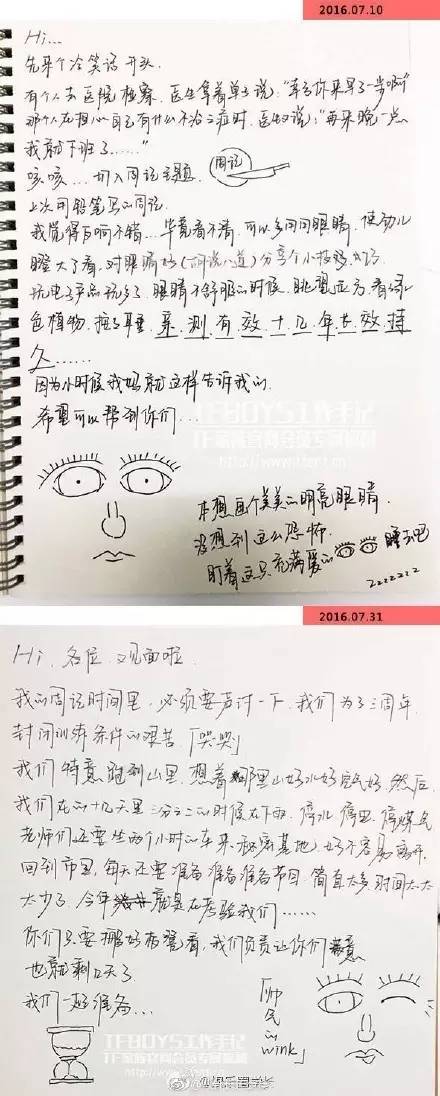 2016.07.10
Hi...
先来个冷笑话开头
有个人去医院检察.医生拿着单子说:"幸亏你来早了一步啊"
那个人在担心自己有什么不治之症时.医生说:"再来晚一点
我就下班了......"
咳咳...切入周记主题.
周记
上次用铅笔写的周记.
我觉得反响不错...毕竟看不清.可以多闭闭眼睛.使劲儿
瞪大了看.对眼睛好(胡说八道)分享个小技巧.
玩电子产品玩多了.眼睛不舒服的时候.眺望远方.看绿
色植物.亲测有效十几年长效持
久......
因为小时候我妈就这样告诉我的.
希望可以帮到你们...
TFBOYS工作手记
本想画个美美的明亮眼睛.
没想到这么恐怖.
盯着这只充满爱的 睡去吧
zzzzzzz
2016.07.31
Hi,各位.又见面啦.
我的周记时间里.必须要声讨一下.我们为了三周年.
封闭训练条件的艰苦「哭哭」
我们特意跑到山里.想着那里山好水好空气好.然后.
我们在的十几天里三分之二的时候在下雨.停水.停电.停煤气
老师们还要坐两个小时的车来秘密基地.好不容易离开.
回到市里.每天还要准备准备准备节目.简直太多.时间太太
太少了.今年就是在考验我们......
你们只要搬好板凳看.我们负责让你们满意
也就剩几天了
我们一起准备...
「帅气的wink」
TFBOYS工作手记
TF家族官网会员专属福利